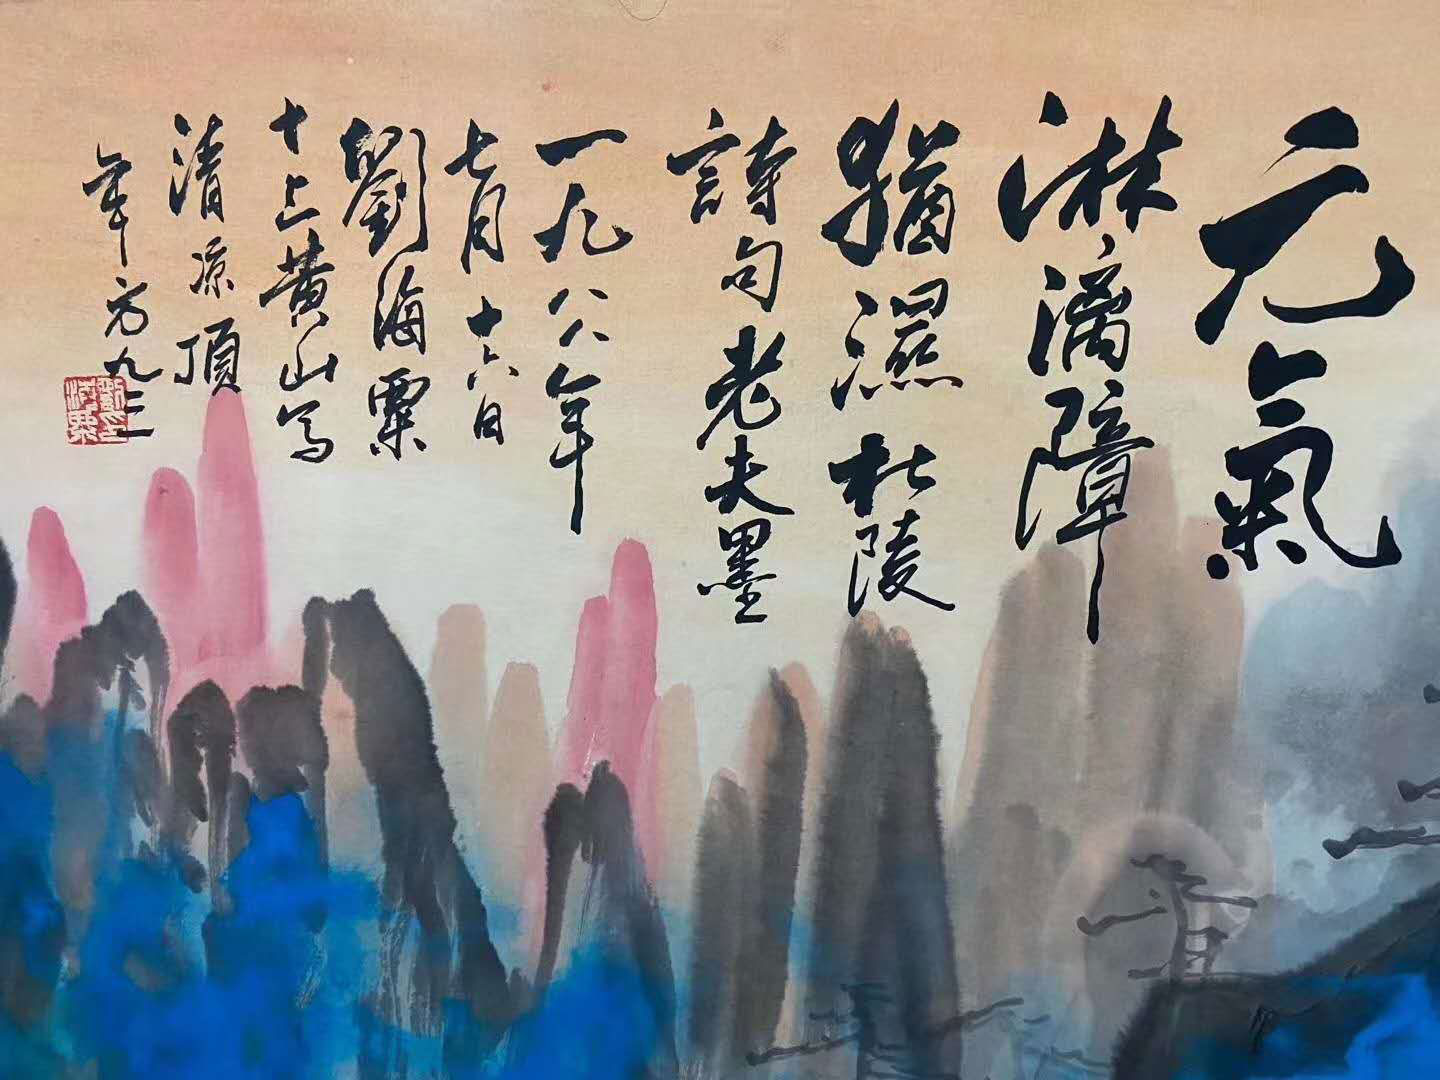 元氣
淋漓障
猶濕杜陵
詩句老夫墨
一九八八年
七月十六日
劉海粟
十上黄山写
清凉頂
年方九三